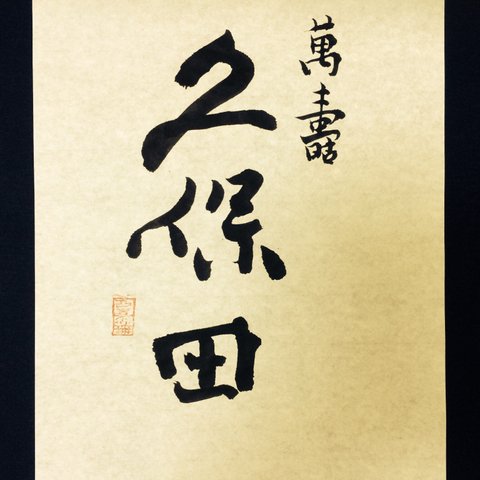 萬壽
久保田